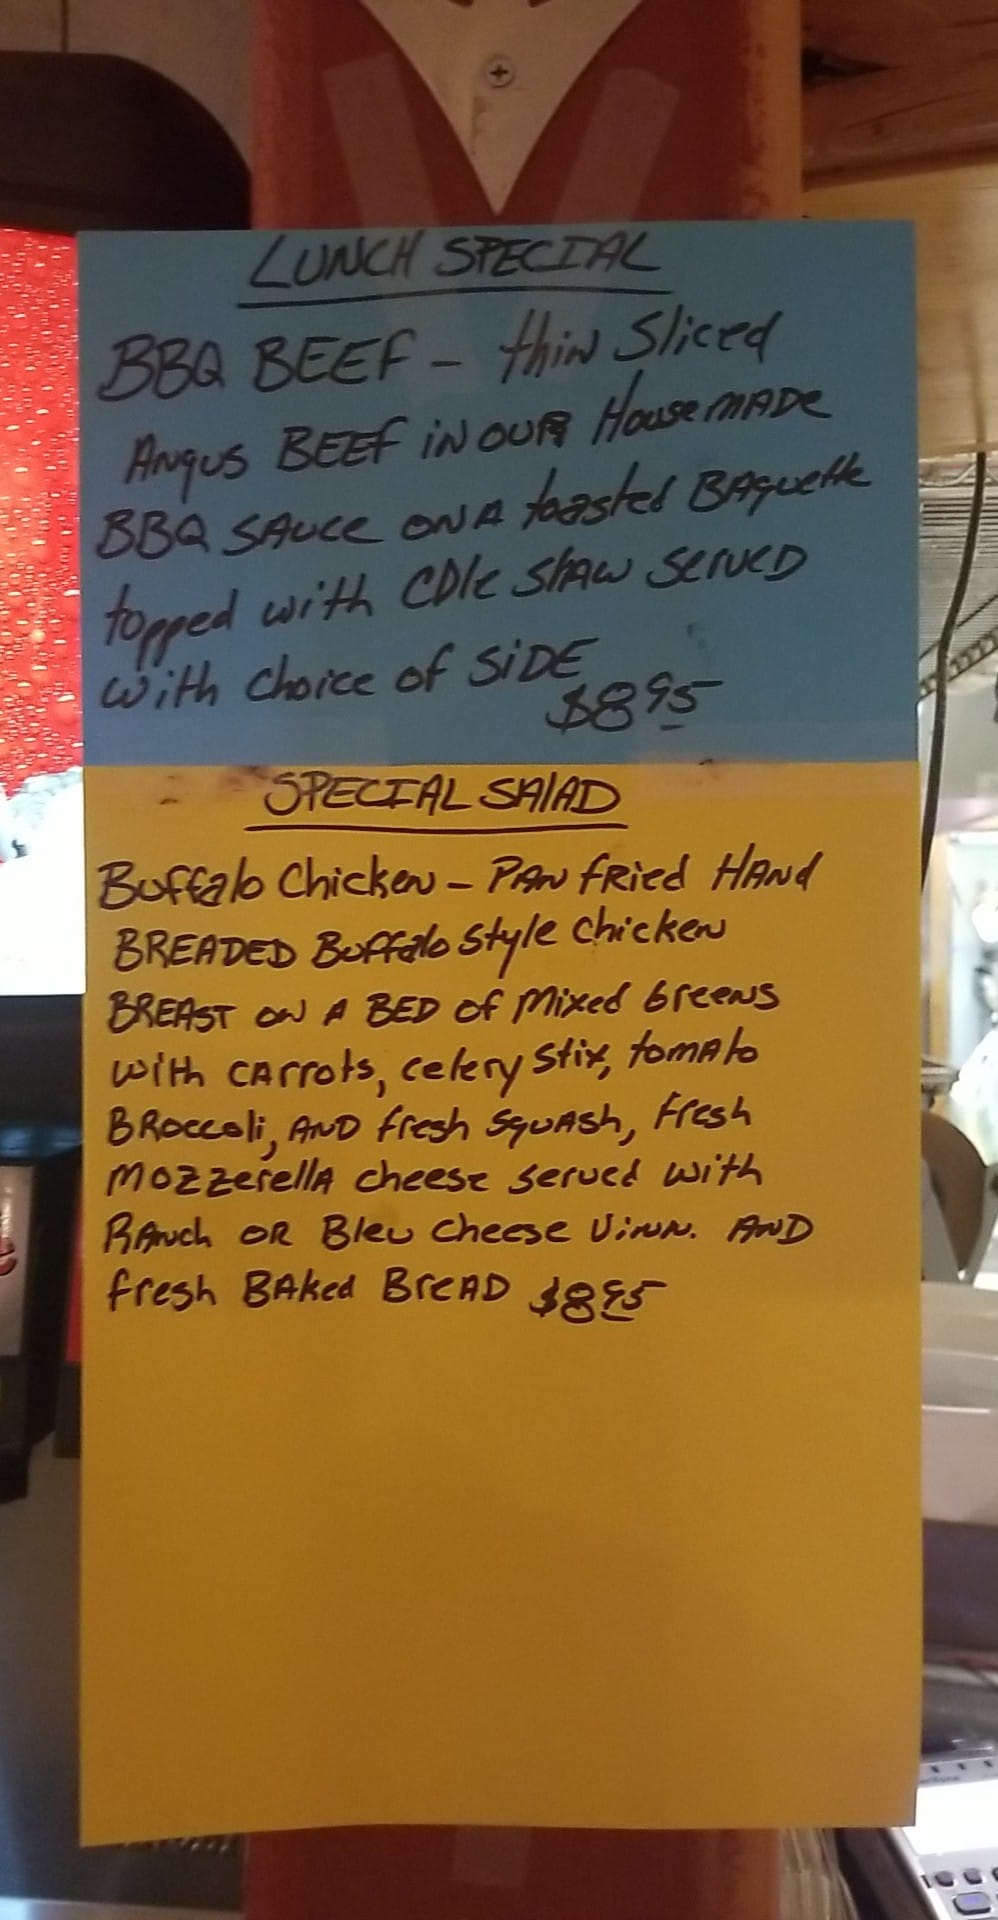 LUNCH SPECIAL
BBQ BEEF - thin Sliced
Angus BEEF in our Housemade
BBQ SAUCE ON A toasted BAguette
topped with COle Shaw Served
with choice of SiDE
$8.95
SPECIAL SAlAD
Buffalo Chicken - PAN fRied HAnd
BREADED Buffalo Style chicken
BREAST on A BED of Mixed Greens
with cArrots, celery Stix, tomAto
BRoccoli, AND fresh SquAsh, fresh
Mozzerella cheese served with
RAnch OR Bleu Cheese Vinn. AND
fresh BAked BreAD $8.95